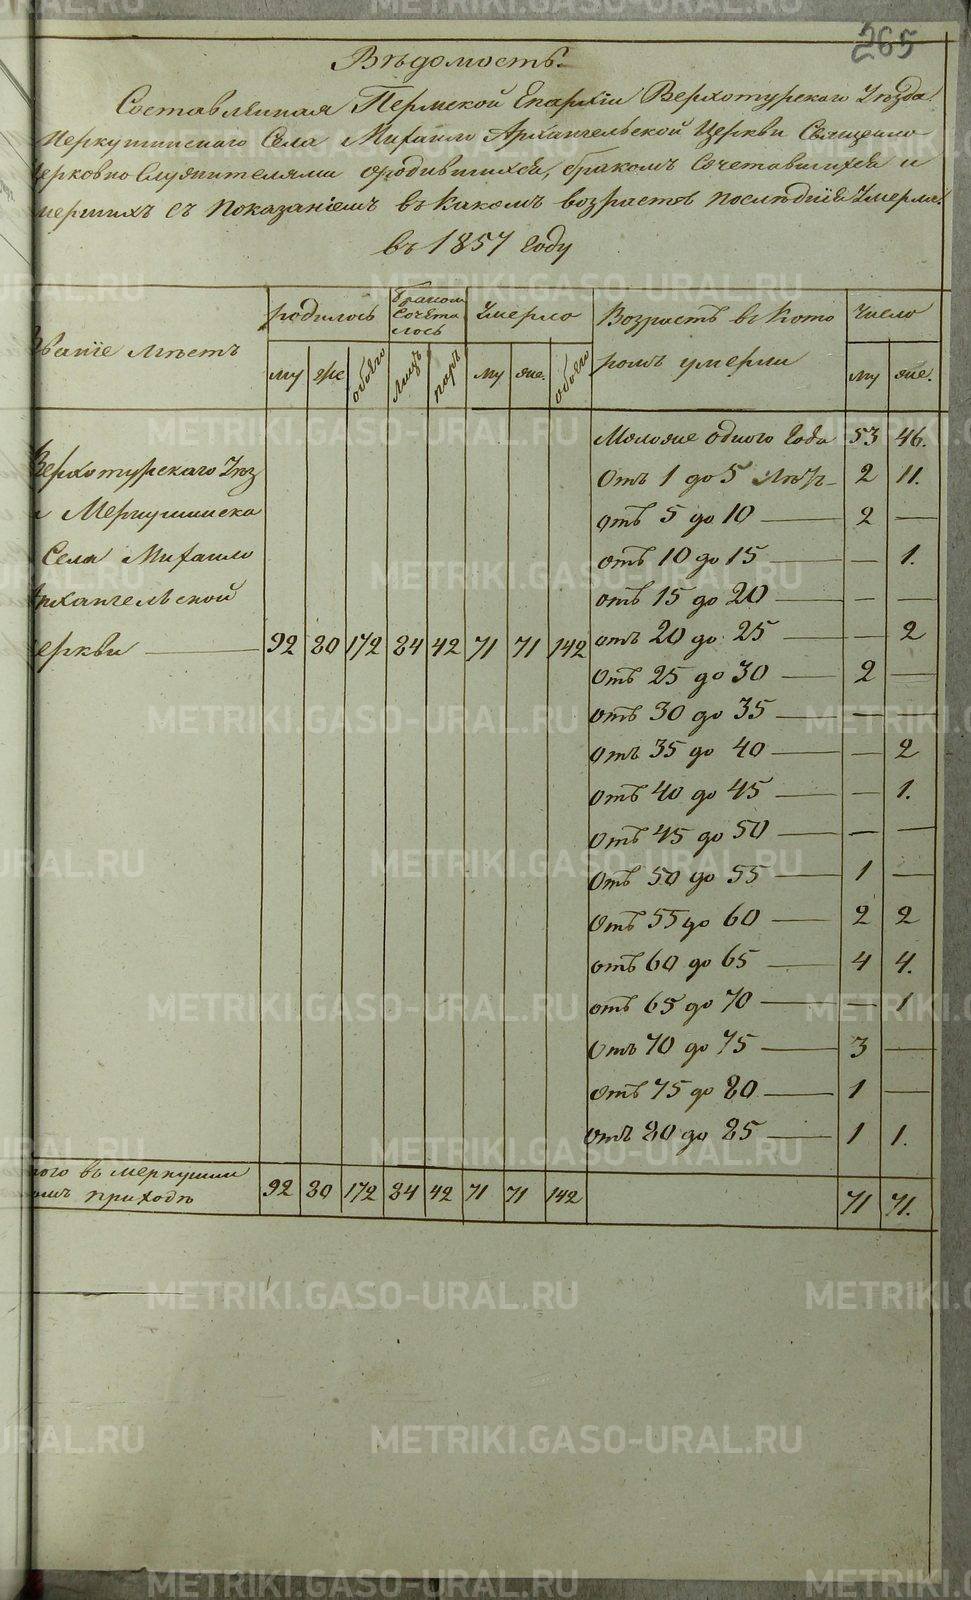 265
Вѣдомость.
Составленная Пермской Епархіи Верхотурскаго Уѣзда
Меркушинскаго Села Михаило Архангельской Церкви Священно
церковно Служителями ородившихся, бракомъ Сочетавшихся и
мершихъ съ показаніемъ въ какомъ возрастѣ послѣдніе Умерли.
въ 1857 Году
звание мѣстъ
родилось
бракомъ Сочета лось
Умерло
Возрастъ въ кото
ромъ умерли
Число
му же обоего лицъ паръ му же. обоего му же.
Моложе одного Года 53 46.
Верхотурскаго Уѣз Отъ 1 до 5 Лѣтъ 2 11.
Меркушинска отъ 5 до 10 — 2 —
Села Михаило отъ 10 до 15 — — 1.
Архангельской отъ 15 до 20 — — —
еркви — 92 80 172 84 42 71 71 142 отъ 20 до 25 — — 2
Отъ 25 до 30 — 2 —
отъ 30 до 35 — — —
отъ 35 до 40 — — 2
отъ 40 до 45 — — 1.
отъ 45 до 50 — — —
Отъ 50 до 55 — 1 —
Отъ 55 до 60 — 2 2
отъ 60 до 65 — 4 4.
отъ 65 до 70 — — 1
Отъ 70 до 75 — 3 —
отъ 75 до 80 — 1 —
отъ 80 до 85 — 1 1.
ого въ меркушин
омъ приходѣ 92 80 172 84 42 71 71 142 71 71.
METRIKI.GASO-URAL.RU